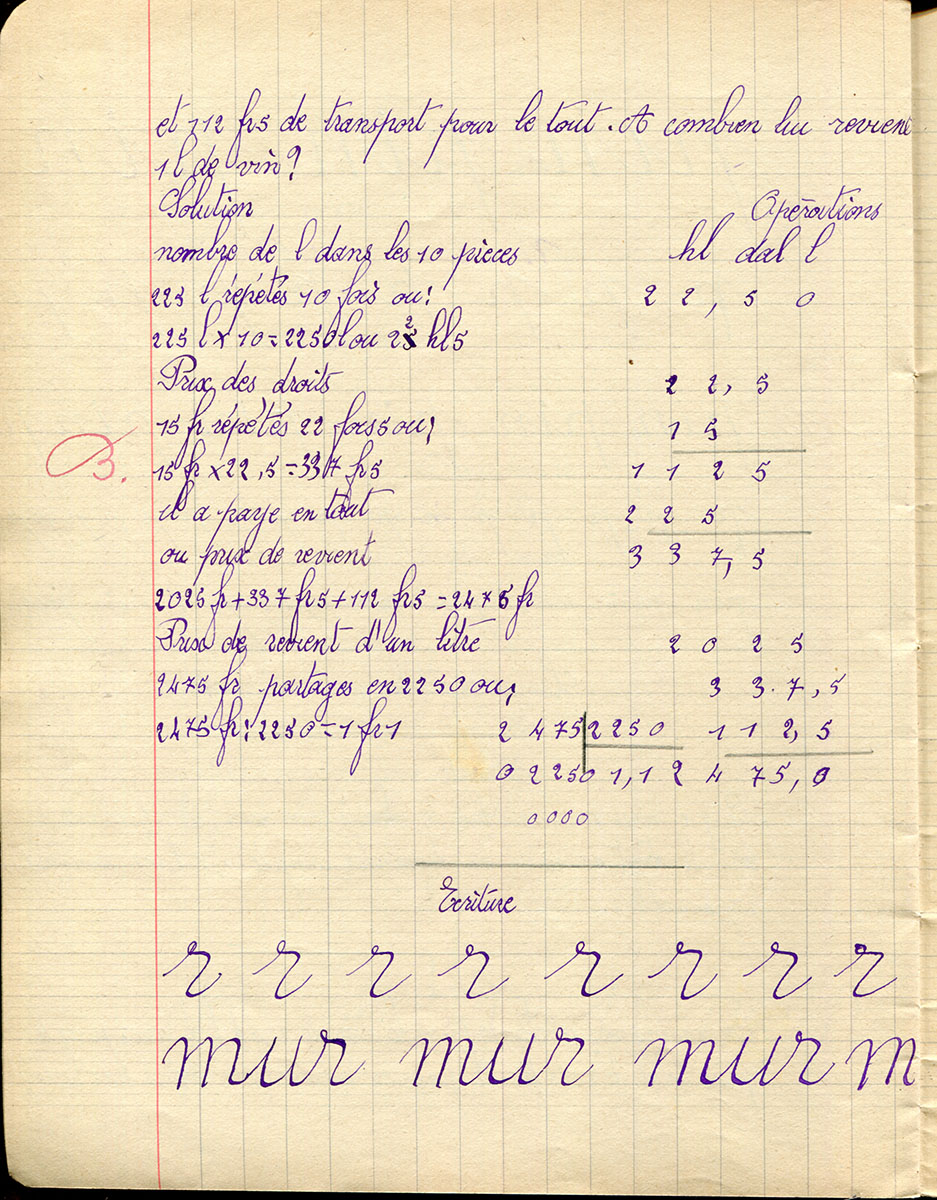 et 112 frs de transport pour le tout. A combien lui revient
1 l de vin?
Solution
Opérations
nombre de l dans les 10 pièces
hl dal l
225 l répétés 10 fois ou:
2 2, 5 0
225 l x 10 = 2250 l ou 22 hl5
Prix des droits
2 2, 5
15 fr répétés 22 fois 5 ou;
1 5
B.
15 fr x 22,5 = 337 fr5
1 1 2 5
il a paye en tout
2 2 5
ou prix de revient
3 3 7, 5
2025 fr + 337 fr5 + 112 fr5 = 2475 fr
Prix de revient d'un litre
2 0 2 5
2475 fr partages en 2250 ou;
3 3.7,5
2475 fr : 2250 = 1 fr1
2 475 2250
1 1 2,5
0 2250 1,12
4 75,0
0000
Ecriture
r r r r r r r r
mur mur mur m